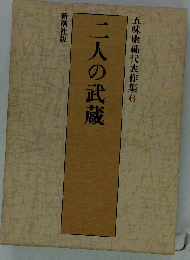 五味康祐代表作集 6
二人の武蔵
新潮社版